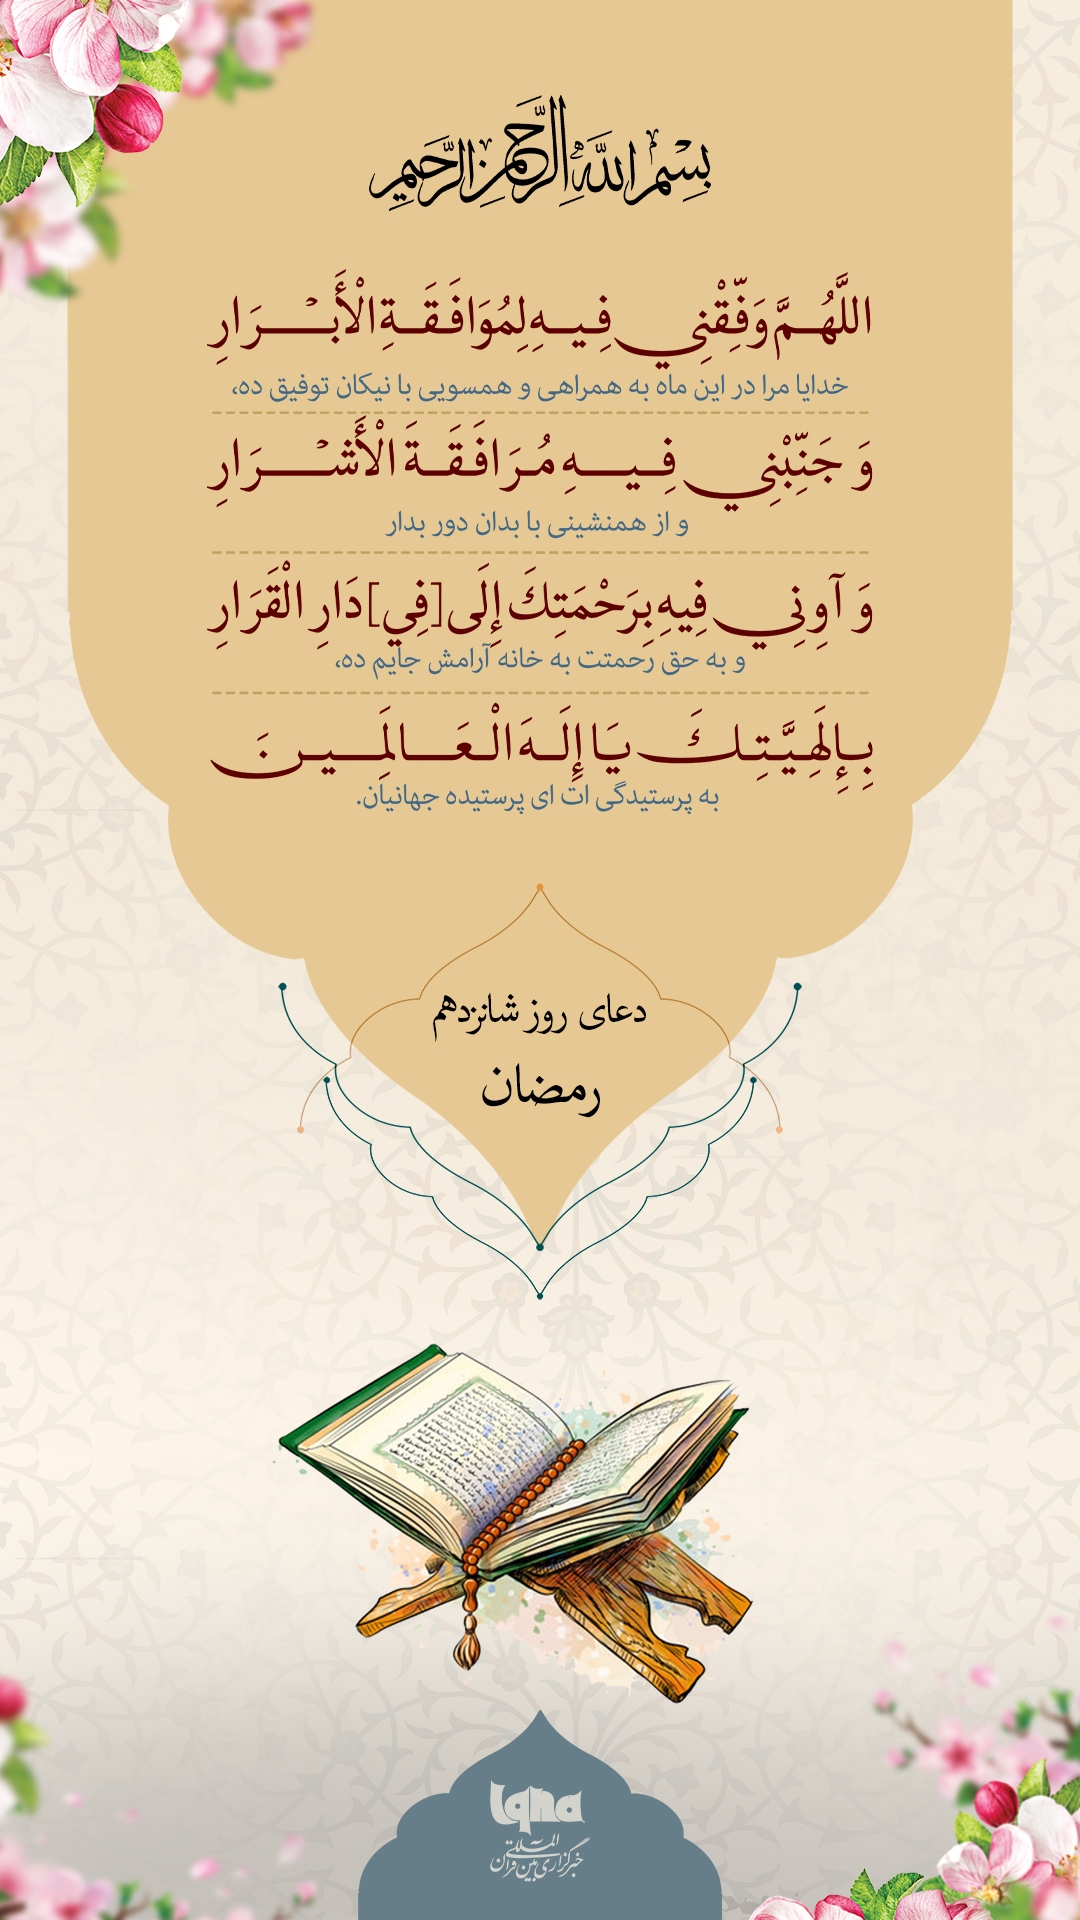 بِسْمِ اللَّهِ الرَّحْمَنِ الرَّحِيمِ
اللَّهُمَّ وَفِّقْنِي فِيهِ لِمُوَافَقَةِ الْأَبْرَارِ
خدایا مرا در این ماه به همراهی و همسویی با نیکان توفیق ده،
وَ جَنِّبْنِي فِيهِ مُرَافَقَةَ الْأَشْرَارِ
و از همنشینی با بدان دور بدار
وَ آوِنِي فِيهِ بِرَحْمَتِكَ إِلَى [فِي] دَارِ الْقَرَارِ
و به حق رحمتت به خانه آرامش جایم ده،
بِإِلَهِيَّتِكَ يَا إِلَهَ الْعَالَمِينَ
به پرستیدگی ات ای پرستیده جهانیان.
دعای روز شانزدهم
رمضان
Iqna
خبرگزاری بین المللی قرآن